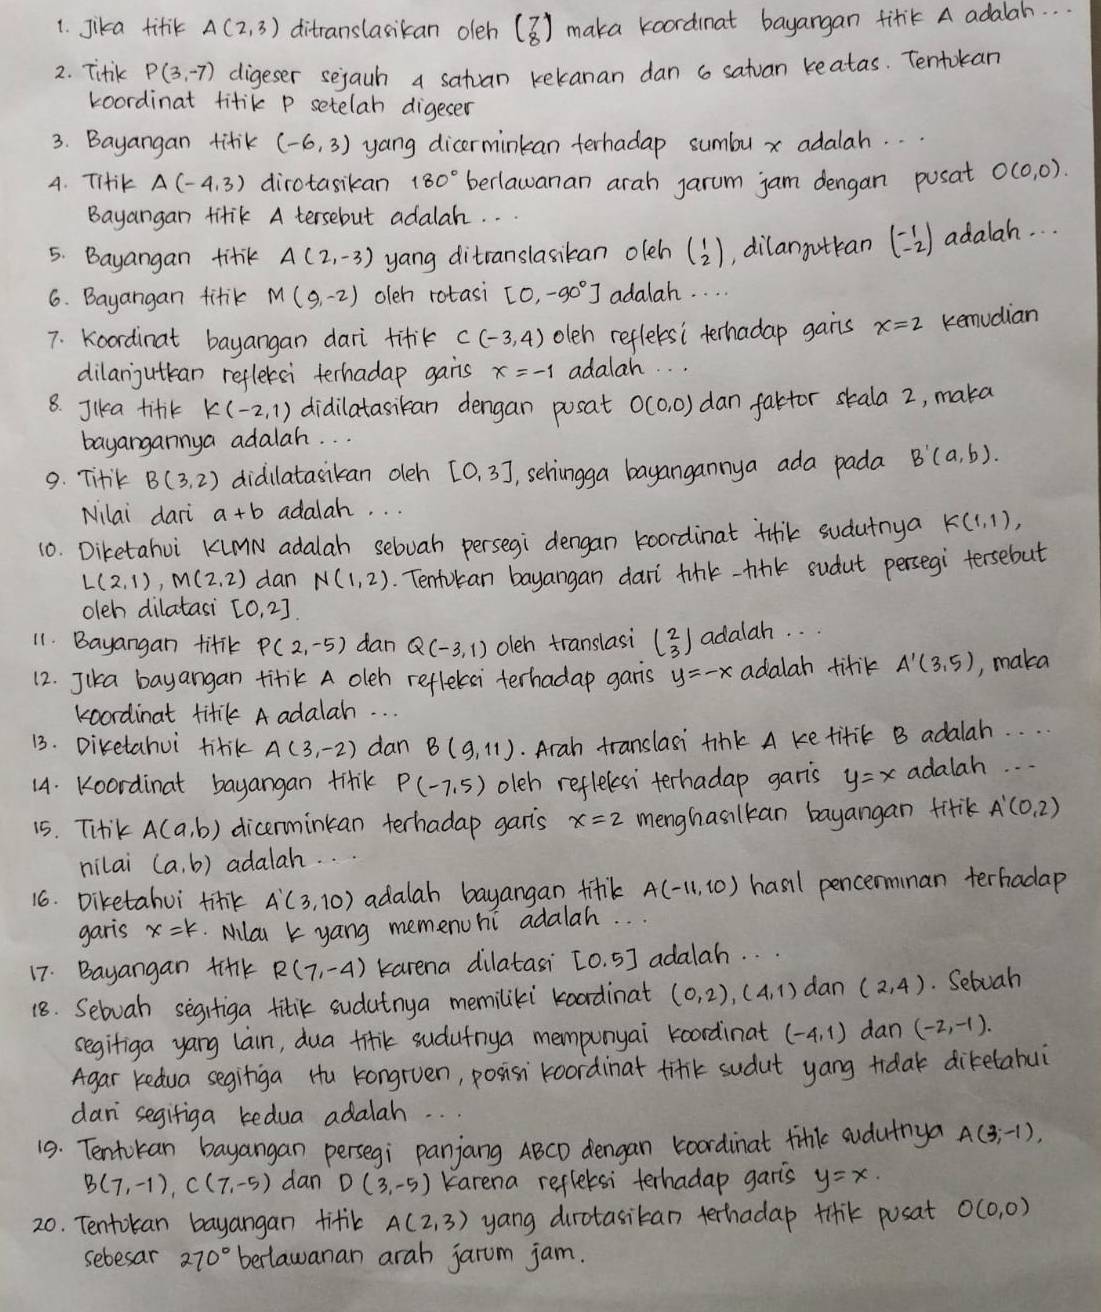 1. Jika titik A(2,3) ditranslasikan oleh (7 8) maka koordinat bayangan titik A adalah...
2. Titik P(3,-7) digeser sejauh 4 satuan kekanan dan 6 satuan keatas. Tentukan
koordinat titik P setelah digeser
3. Bayangan titik (-6,3) yang dicerminkan terhadap sumbu x adalah...
4. Titik A(-4,3) dirotasikan 180° berlawanan arah jarum jam dengan pusat O(0,0).
Bayangan titik A tersebut adalah...
5. Bayangan titik A(2,-3) yang ditranslasikan oleh (1 2), dilanjutkan (-1 -2) adalah...
6. Bayangan titik M(9,-2) oleh rotasi [0,-90°] adalah....
7. Koordinat bayangan dari titik C(-3,4) oleh refleksi terhadap garis x=2 kemudian
dilanjutkan refleksi terhadap garis x=-1 adalah...
8. Jika titik K(-2,1) didilatasikan dengan pusat O(0,0) dan faktor skala 2, maka
bayangannya adalah...
9. Titik B(3,2) didilatasikan oleh [0,3], sehingga bayangannya ada pada B'(a,b).
Nilai dari a+b adalah...
10. Diketahui KLMN adalah sebuah persegi dengan koordinat titik sudutnya K(1,1),
L(2,1), M(2,2) dan N(1,2). Tentukan bayangan dari titik-titik sudut persegi tersebut
oleh dilatasi [0,2].
11. Bayangan titik P(2,-5) dan Q(-3,1) oleh translasi (2 3) adalah...
12. Jika bayangan titik A oleh refleksi terhadap garis y=-x adalah titik A'(3,5), maka
koordinat titik A adalah...
13. Diketahui titik A(3,-2) dan B(9,11). Arah translasi titik A ke titik B adalah....
14. Koordinat bayangan titik P(-7,5) oleh refleksi terhadap garis y=x adalah...
15. Titik A(a,b) dicerminkan terhadap garis x=2 menghasilkan bayangan titik A'(0,2)
nilai (a,b) adalah...
16. Diketahui titik A'(3,10) adalah bayangan titik A(-11,10) hasil pencerminan terhadap
garis x=k. Nilai k yang memenuhi adalah...
17. Bayangan titik R(7,-4) karena dilatasi [0.5] adalah...
18. Sebuah segitiga titik sudutnya memiliki koordinat (0,2), (4,1) dan (2,4). Sebuah
segitiga yang lain, dua titik sudutnya mempunyai koordinat (-4,1) dan (-2,-1).
Agar kedua segitiga itu kongruen, posisi koordinat titik sudut yang tidak diketahui
dari segitiga kedua adalah...
19. Tentukan bayangan persegi panjang ABCD dengan koordinat titik sudutnya A(3,-1),
B(7,-1), C(7,-5) dan D(3,-5) karena refleksi terhadap garis y=x.
20. Tentukan bayangan titik A(2,3) yang dirotasikan terhadap titik pusat O(0,0)
sebesar 270° berlawanan arah jarum jam.